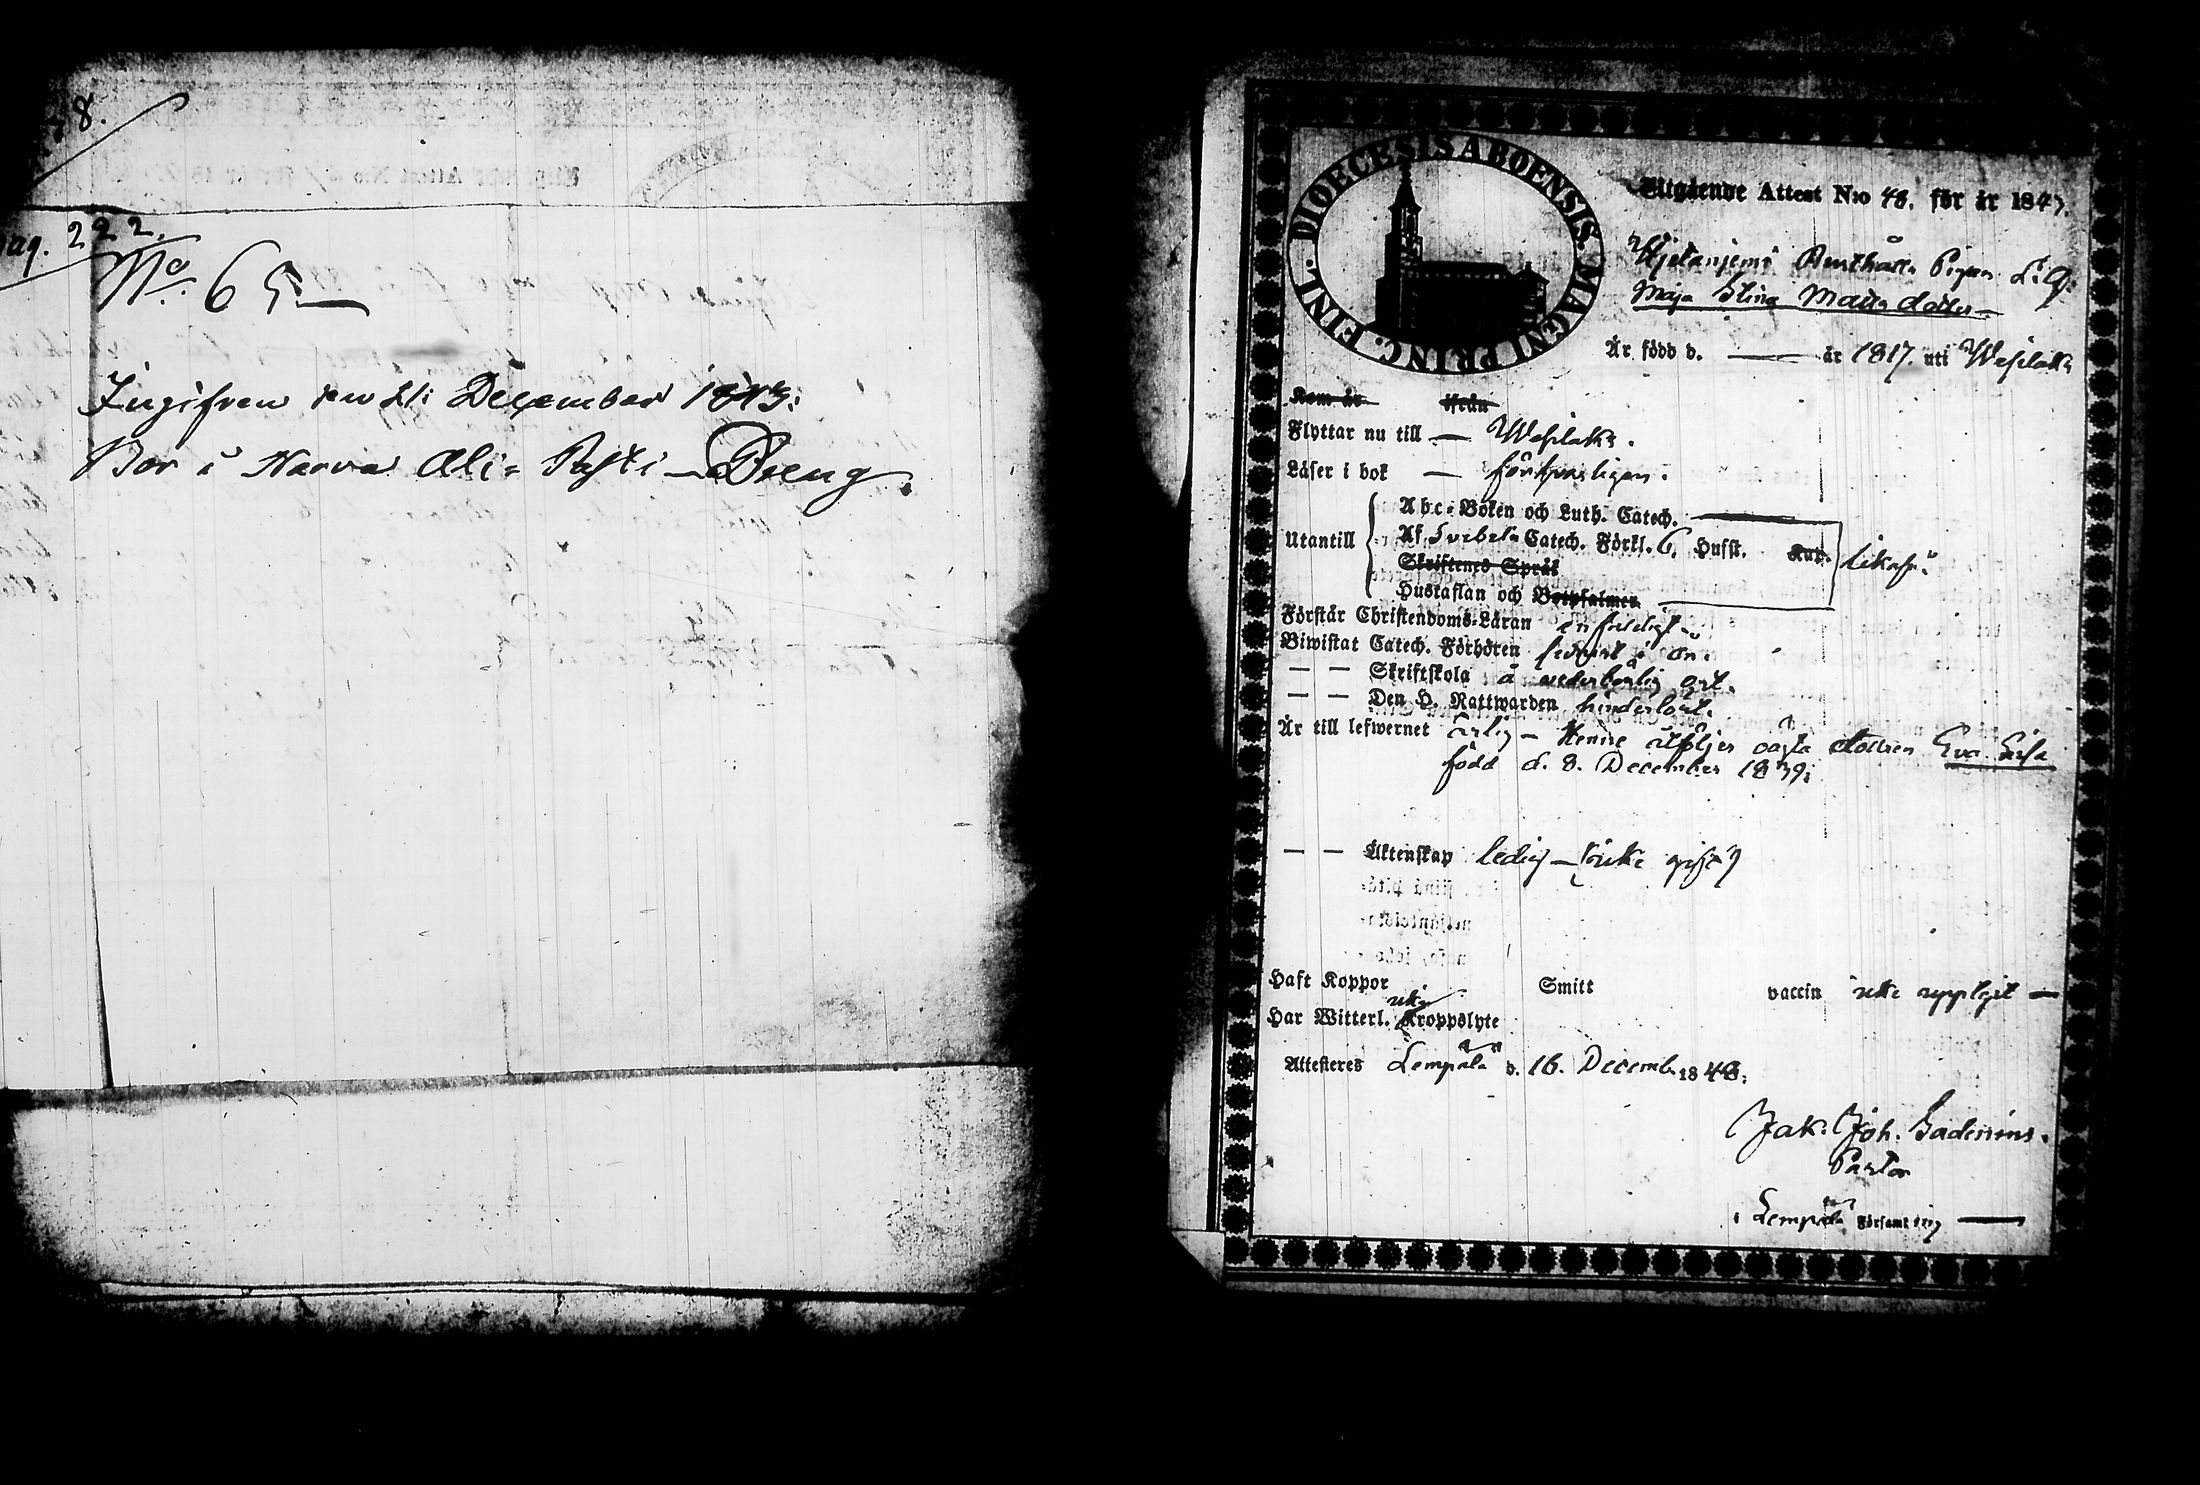 8.
pag. 222.
No. 65
Ingifven den 21: December 1843:
Bor i Narva Ali- Pasti Dreng.
DIOECESIS ABOENSIS. MAGNI PRINC. FINL.
Utgående Attest N:o 48. för år 1843.
Maja Stina Matts dotter
Är född d. — år 1817. uti Wesilaks
Kom år ifrån
Flyttar nu till — Wesilaks.
Läser i bok — försvarligen.
Abc-Boken och Luth. Catech.
Utantill Af Svebelii Catech. Förkl. 6, Husst. likaså.
Skriftenes Språk
Hustaflan och Botpsalmer
Förstår Christendoms-Läran enfaldigt
Biwistat Catech. Förhören
— — Skriftskola å vederbörlig ort.
— — Den H. Nattwarden hinderlöst.
Är till lefwernet ärlig — Henne åtföljer oägta dottren Eva Lisa
född d. 8. December 1839:
— — Äktenskap ledig — (icke gift)
Haft Koppor Smitt vaccin icke uppteget —
Har Witterl. icke Kroppslyte
Attesteres Lempälä d. 16. Decemb. 1843:
Jak. Joh. Gadenius.
Pastor
i Lempälä Församling